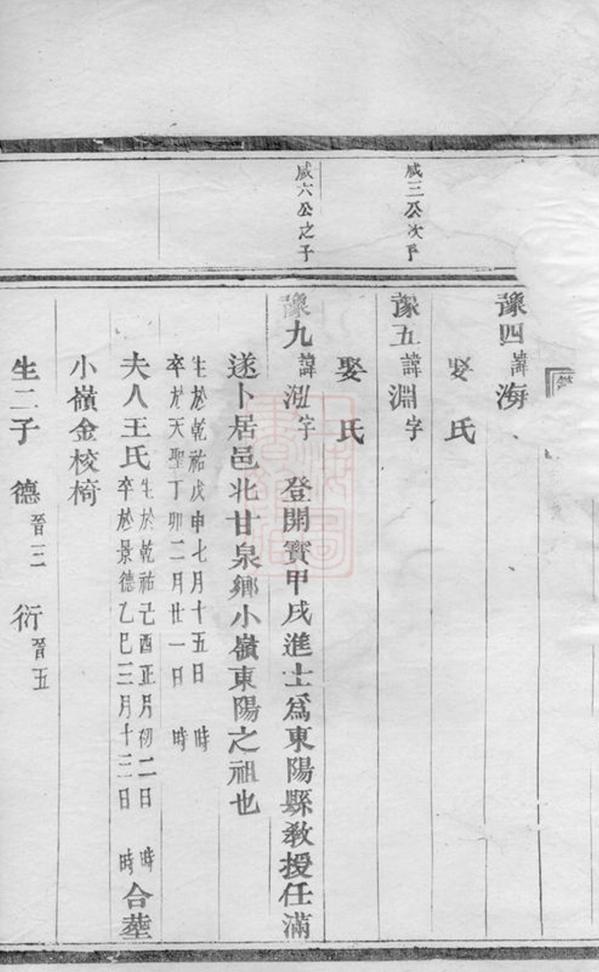 豫四諱海
娶氏
咸三公次子
豫五諱淵字
娶氏
咸六公之子
豫九諱泓字 登開寶甲戌進士為東陽縣教授任滿
遂卜居邑北甘泉鄉小嶺東陽之祖也
生於乾祐戊申七月十五日 時
卒於天聖丁卯二月廿一日 時
夫人王氏 生於乾祐己酉正月初二日 時
卒於景德乙巳三月十三日 時 合塟
小嶺金校椅
生二子 德晉三 衍晉五